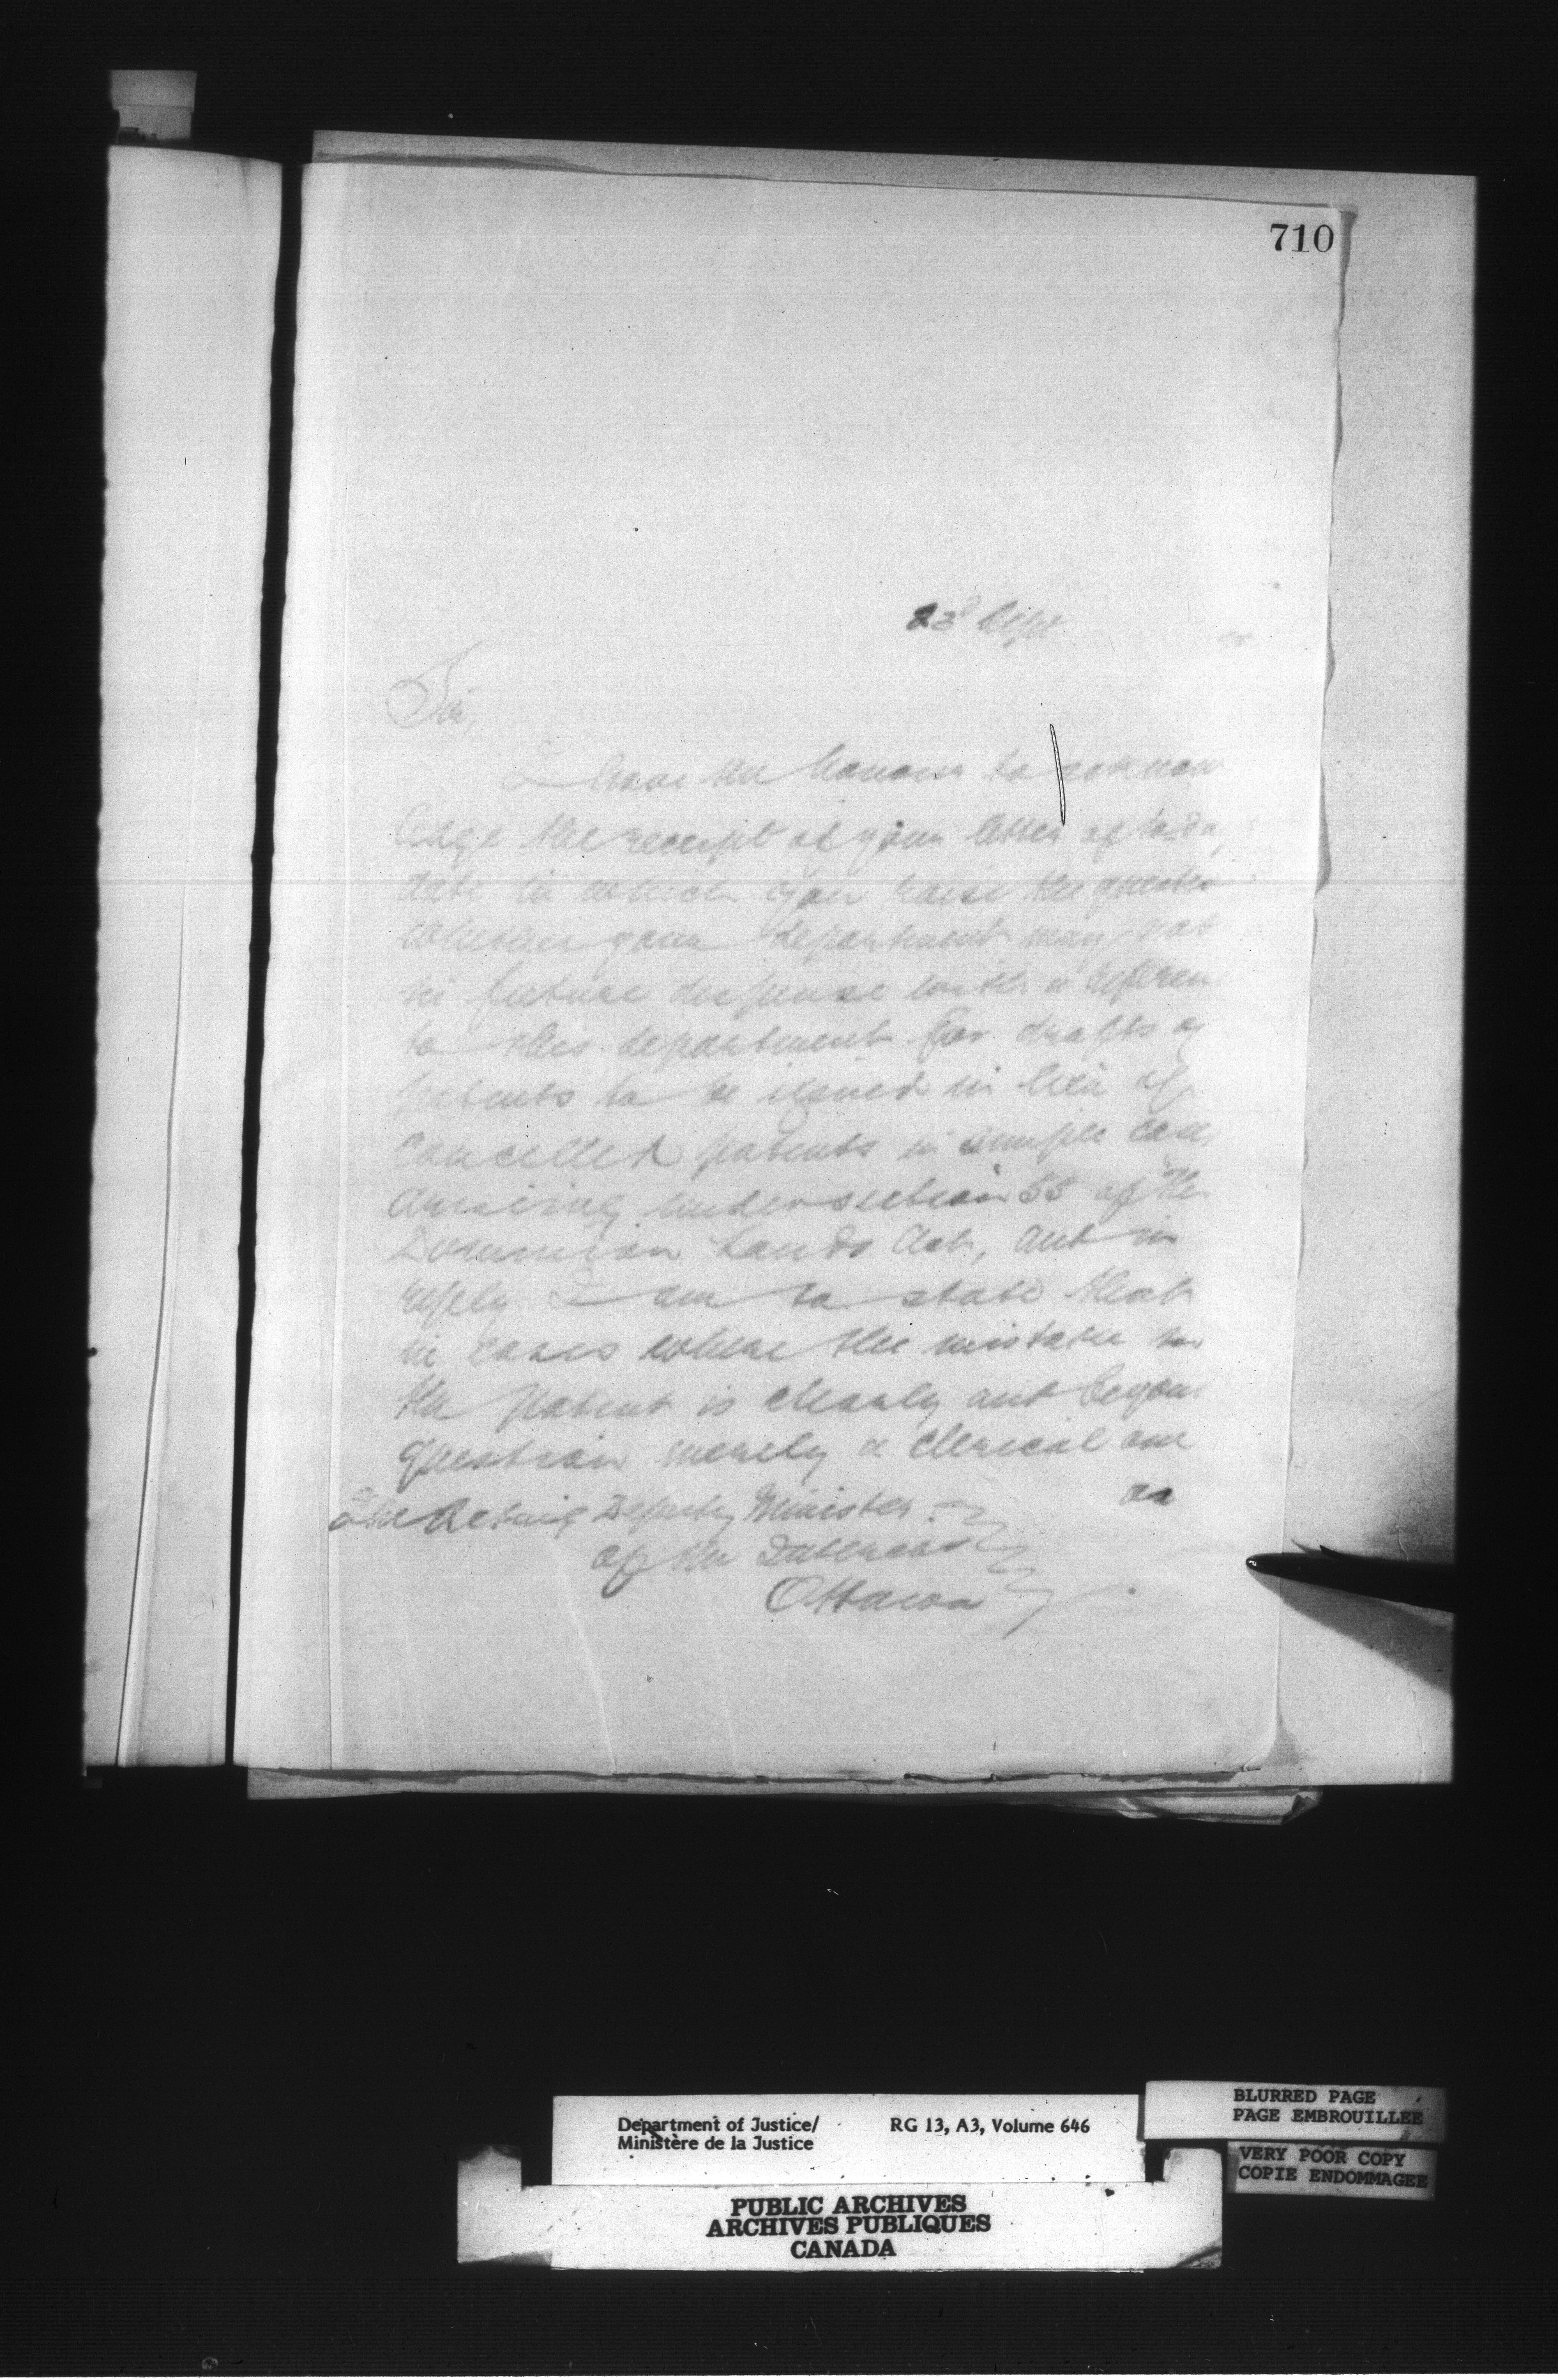 710
23d Sept
Sir,
I have the honour to acknow
ledge the receipt of your letter of to-day
date in which you raise the question
whether your department may not
in future dispense with a referen
to this department for drafts of
patents to be issued in lieu of
cancelled patents in simple cases
arising under section 55 of the
Dominion Lands Act, and in
reply I am to state that
in cases where the mistake in
the patent is clearly and beyond
question merely a clerical one
as
The Acting Deputy Minister
of the Interior
Ottawa
Department of Justice/ RG 13, A3, Volume 646
Ministère de la Justice
BLURRED PAGE
PAGE EMBROUILLEE
VERY POOR COPY
COPIE ENDOMMAGEE
PUBLIC ARCHIVES
ARCHIVES PUBLIQUES
CANADA